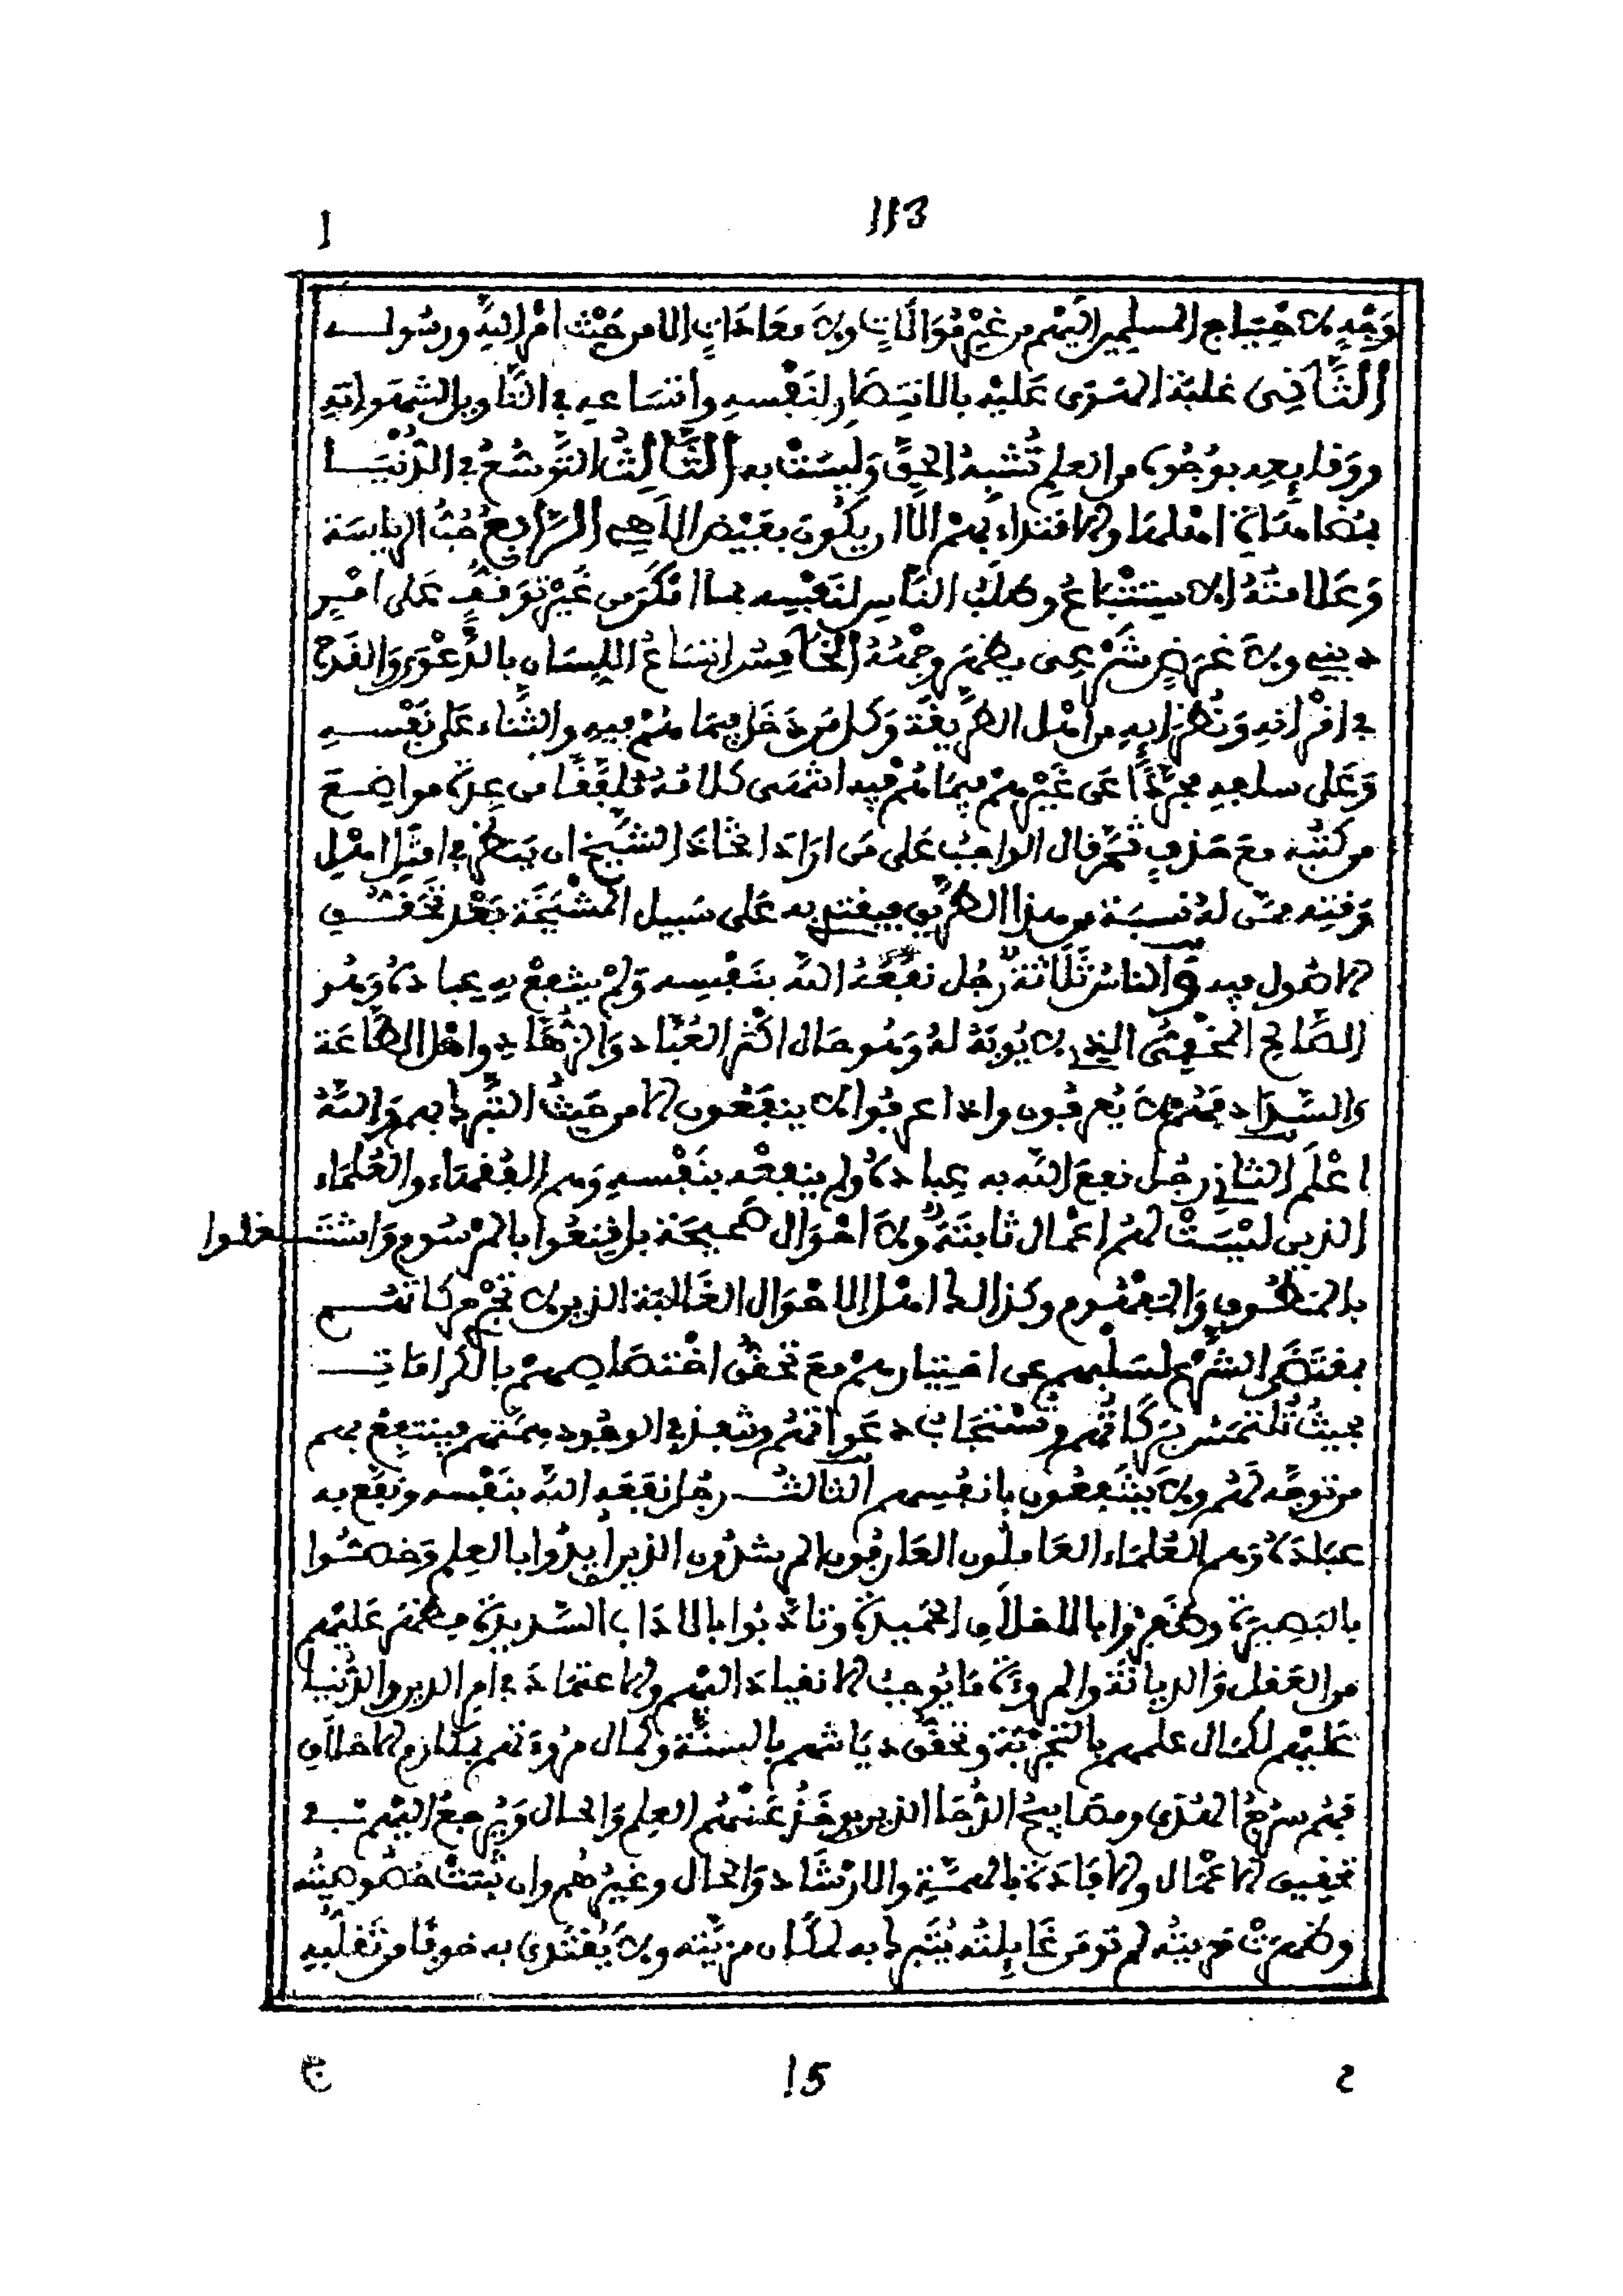 113
ا
وَجْهِ الاحْتِيَاجِ المسلمين إليهم من غيْر مُوَالَاتٍ ولا معَادَاتٍ إلا من حَيْث أمْر اللهِ ورسُولـه
الثَّانِي غلبَة الهَوَى عَليْه بالانتِصَارِ لنَفْسِهِ واتسَاعه في التَّاويل لشهَواتهِ
ووقايعه بوُجُوه من العلم تُشْبِهُ الحقَّ وَليسَتْ به الثَّالِثُ التوَسُّعُ في الدُّنْيَا
الرَّابِعُ حُبُّ الرياسَة
وَعَلَامَتُهُ الاستِتْبَاعُ وطلَبُ النَّاسِ لنَفْسِه بما أمْكَن من غَيْر تَوَقُّفٍ عَلى أمْرٍ
دينيٍ ولا غرَضٍ شَرْعِي يظهَر وجْهُهُ الخَامِسُ اتسَاعُ اللسَان بالدَّعْوَى وَالقَدْح
في أقْرانِهِ وَنُظَرَايِهِ من أهْل الطَّرِيقَة وَكل من دَخَل فِيمَا هُمْ فيهِ والثَّنَاء عَلى نَفْسِـهِ
وَعَلى سلفِهِ مجرَّدًا عَن غَيْرهم فِيمَا هُمْ فيه انتهَى كلامُهُ مُلَفَّقًا من عِدَّة مواضِعَ
من كتُبه معَ حَذفٍ ثُمَّ قال الواجبُ عَلى مَن أرَادَ اتخَاذَ الشَّيْخ ان يَنظُر في أمْثَل أهْل
وَقتِه ممَّن لهُ نسبَة من هذا الطَّرِيق فيقتدِي به عَلى سَبيل المشْيَخَة بَعْد تَحَقُّـقِ
الاصُول فيه وَالناسُ ثَلَاثَةٌ رَجُل نفَعَهُ اللهُ بنَفْسِه وَلمْ ينْفعْ بهِ عِبادَهُ وَهُو
الصَّالِح المخْفِي الذي لا يُوبَهُ لهُ وَهُو حَال أكْثر العُبَّاد وَالزُّهَّادِ وأهْل الطَّاعَة
وَالسَّدَاد فَهُمْ لا يُعرفُون وإذا عرفُوا لا ينفَعُون إلا من حَيثُ التَّبَرك بهم وَاللهُ
أعْلَم الثاني رجُل نفعَ الله به عِبادَهُ ولم ينفعْه بنَفْسِهِ وَهم الفُقهَاء والعُلَمَاء
الذين ليْسَتْ لهُم أعْمَال ثابتَةٌ ولا أحْوَال صَحِيحَة بل قنِعُوا بالمرْسُوم وَاشتَـغلوا
بالمنطُـوق وَالمَفهُوم وكذالك أهْل الأحْوَال الغَالبَة الذين لا تَجْرِ حركاتهُـم
بمقتَضَى الشَّرْع لسَلْبهم عن اختيَارهم معَ تحقُّق اختصَاصِهمْ بالكرَامَاتِ
بحيثُ تُلتَمَسُ بَرَكَاتُهُم وتُسْتجَابُ دعَواتُهُم وتنفذُ في الوجُود همَّتهم فينتفعُ بهم
من توجَّه لهُم ولا ينْتَفعُون بأنفُسِهم الثالثُ رجُل نفَعَهُ اللهُ بنَفْسه ونَفَع به
عبَادَهُ وَهم العُلَمَاء العَامِلُون العَارفُون المرشدُون الذين أُيِّدُوا بالعِلم وَخُصُّوا
بالبَصِيرَة وظفِرُوا بالأخلاق الحَمِيدَة وتأدَّبُوا بالآدَاب السَّدِيدَة فيظهَر عَليْهِم
من العَقل وَالديانَة والمروءَة مَا يُوجبُ الانقيادَ اليْهم والاعتمَادَ في أمر الدين والدُّنيا
عَليْهم لكمَال علمهم بالتَّجْربَة وتحقُّق ديَانتهم بالسنَّة وكمَال مرُوءَتهم بمَكارم الأخلاق
فهُم سرُجُ الهُدَى ومصَابيحُ الدُّجَا الذين يوخَذُ عَنهُم العِلم وَالحال وَيُرجعُ إليْهم فـي
تَحقِيق الأعْمَال والإفَادَة بالهمَّةِ والإرشَاد وَالحال وغيْرُهُم وإن ثبَتتْ خصُوصِيَّتُه
وظهَرَتْ مزيتُه لم تُومَن غَايِلتُه يُتَبرك به لمكَان مزيَّته ولا يُقتَدَى به خوفًا من تقلّبهِ
ج
15
2